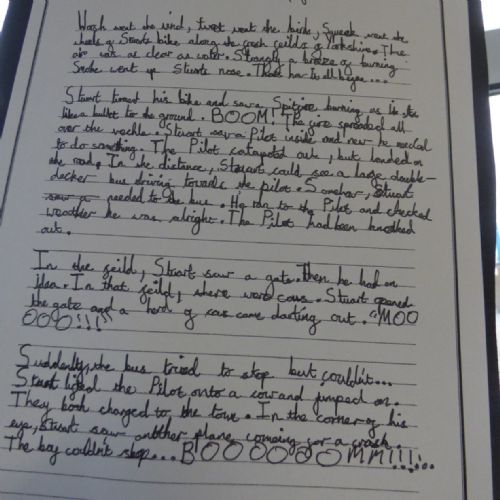 Woosh went the wind, tweet went the birds, Squeek went the
wheels of Stuarts bike along the fresh feilds of Yorkshire. The
air was as clear as water. Strangly a breeze of burning
Smoke went up Stuarts nose. Thats how it all began...
Stuart turned his bike and saw a Spitfire burning as it
like a bullet to the ground. BOOM! The fire spreaded all
over the vechle. Stuart saw a Pilot inside and new he needed
to do something. The Pilot catapolted out, but landed on
the road. In the distance, Stuart could see a large double-
decker bus driving towards the pilot. Somehow, Stuart
saw a needed to the bus. He ran to the Pilot and checked
weather he was alright. The Pilot had been knocked
out.
In the feild, Stuart saw a gate. Then he had an
idea. In that feild, there were cows. Stuart opened
the gate and a herd of cows came darting out. "MOO
OOO!!!"
Suddenly, the bus tried to stop but couldn't...
Stuart lifted the Pilot onto a cow and jumped on.
They both charged to the town. In the corner of his
eye, Stuart saw another plane coming for a crash.
The boy couldn't stop... BOOOOOOOMM!!!!...